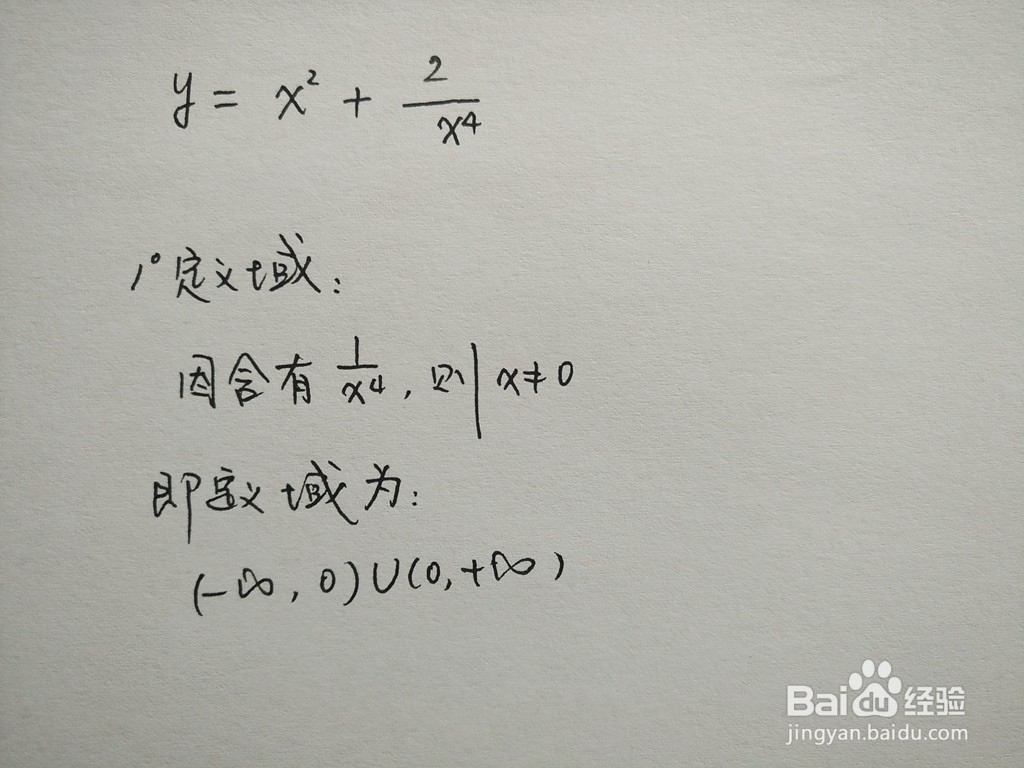 y = x² + 2/x⁴
1° 定义域：
因含有 1/x⁴，则 x≠0
即定义域为：
(-∞, 0)∪(0, +∞)
Baidu经验
jingyan.baidu.com